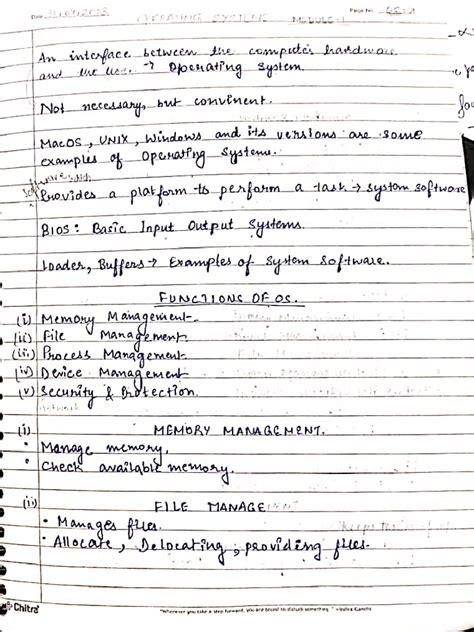 Date
OPERATING SYSTEMS MODULE-1
Page No.
An interface between the computer hardware
and the user → Operating System.
Not necessary, but convinent.
MacOS, UNIX, Windows and its versions are some
examples of Operating Systems.
Software which
Provides a platform to perform a task → system software
BIOS: Basic Input Output Systems.
Loader, Buffers → Examples of System Software.
FUNCTIONS OF OS.
(i) Memory Management
(ii) File Management
(iii) Process Management
(iv) Device Management
(v) Security & Protection.
(i) MEMORY MANAGEMENT.
• Manage memory.
• Check available memory.
(ii) FILE MANAGEMENT
• Manages files.
• Allocate, Delocating, providing files.
Chitra
"Wherever you take a step forward, you are bound to disturb something." - Indira Gandhi